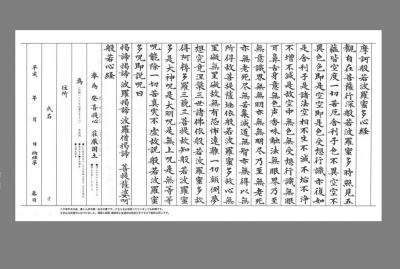 摩訶般若波羅蜜多心経
觀自在菩薩行深般若波羅蜜多時照見五
蘊皆空度一切苦厄舎利子色不異空空不
異色色即是空空即是色受想行識亦復如
是舎利子是諸法空相不生不滅不垢不浄
不増不減是故空中無色無受想行識無眼
耳鼻舌身意無色声香味触法無眼界乃至
無意識界無無明亦無無明尽乃至無老死
亦無老死尽無苦集滅道無智亦無得以無
所得故菩提薩埵依般若波羅蜜多故心無
罣礙無罣礙故無有恐怖遠離一切顛倒夢
想究竟涅槃三世諸佛依般若波羅蜜多故
得阿耨多羅三藐三菩提故知般若波羅蜜
多是大神呪是大明呪是無上呪是無等等
呪能除一切苦真実不虚故説般若波羅蜜
多呪即説呪曰
掲諦掲諦波羅掲諦波羅僧掲諦菩提薩婆訶
般若心経
奉為 發菩提心 莊嚴国土
為
住所
氏名 才
平成 年 月 日 納経第 巻目